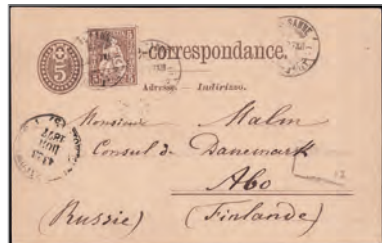 5
e-correspondance.
Adresse. — Indirizzo.
Monsieur Malm
Consul de Danemark
Abo
(Russie) (Finlande)